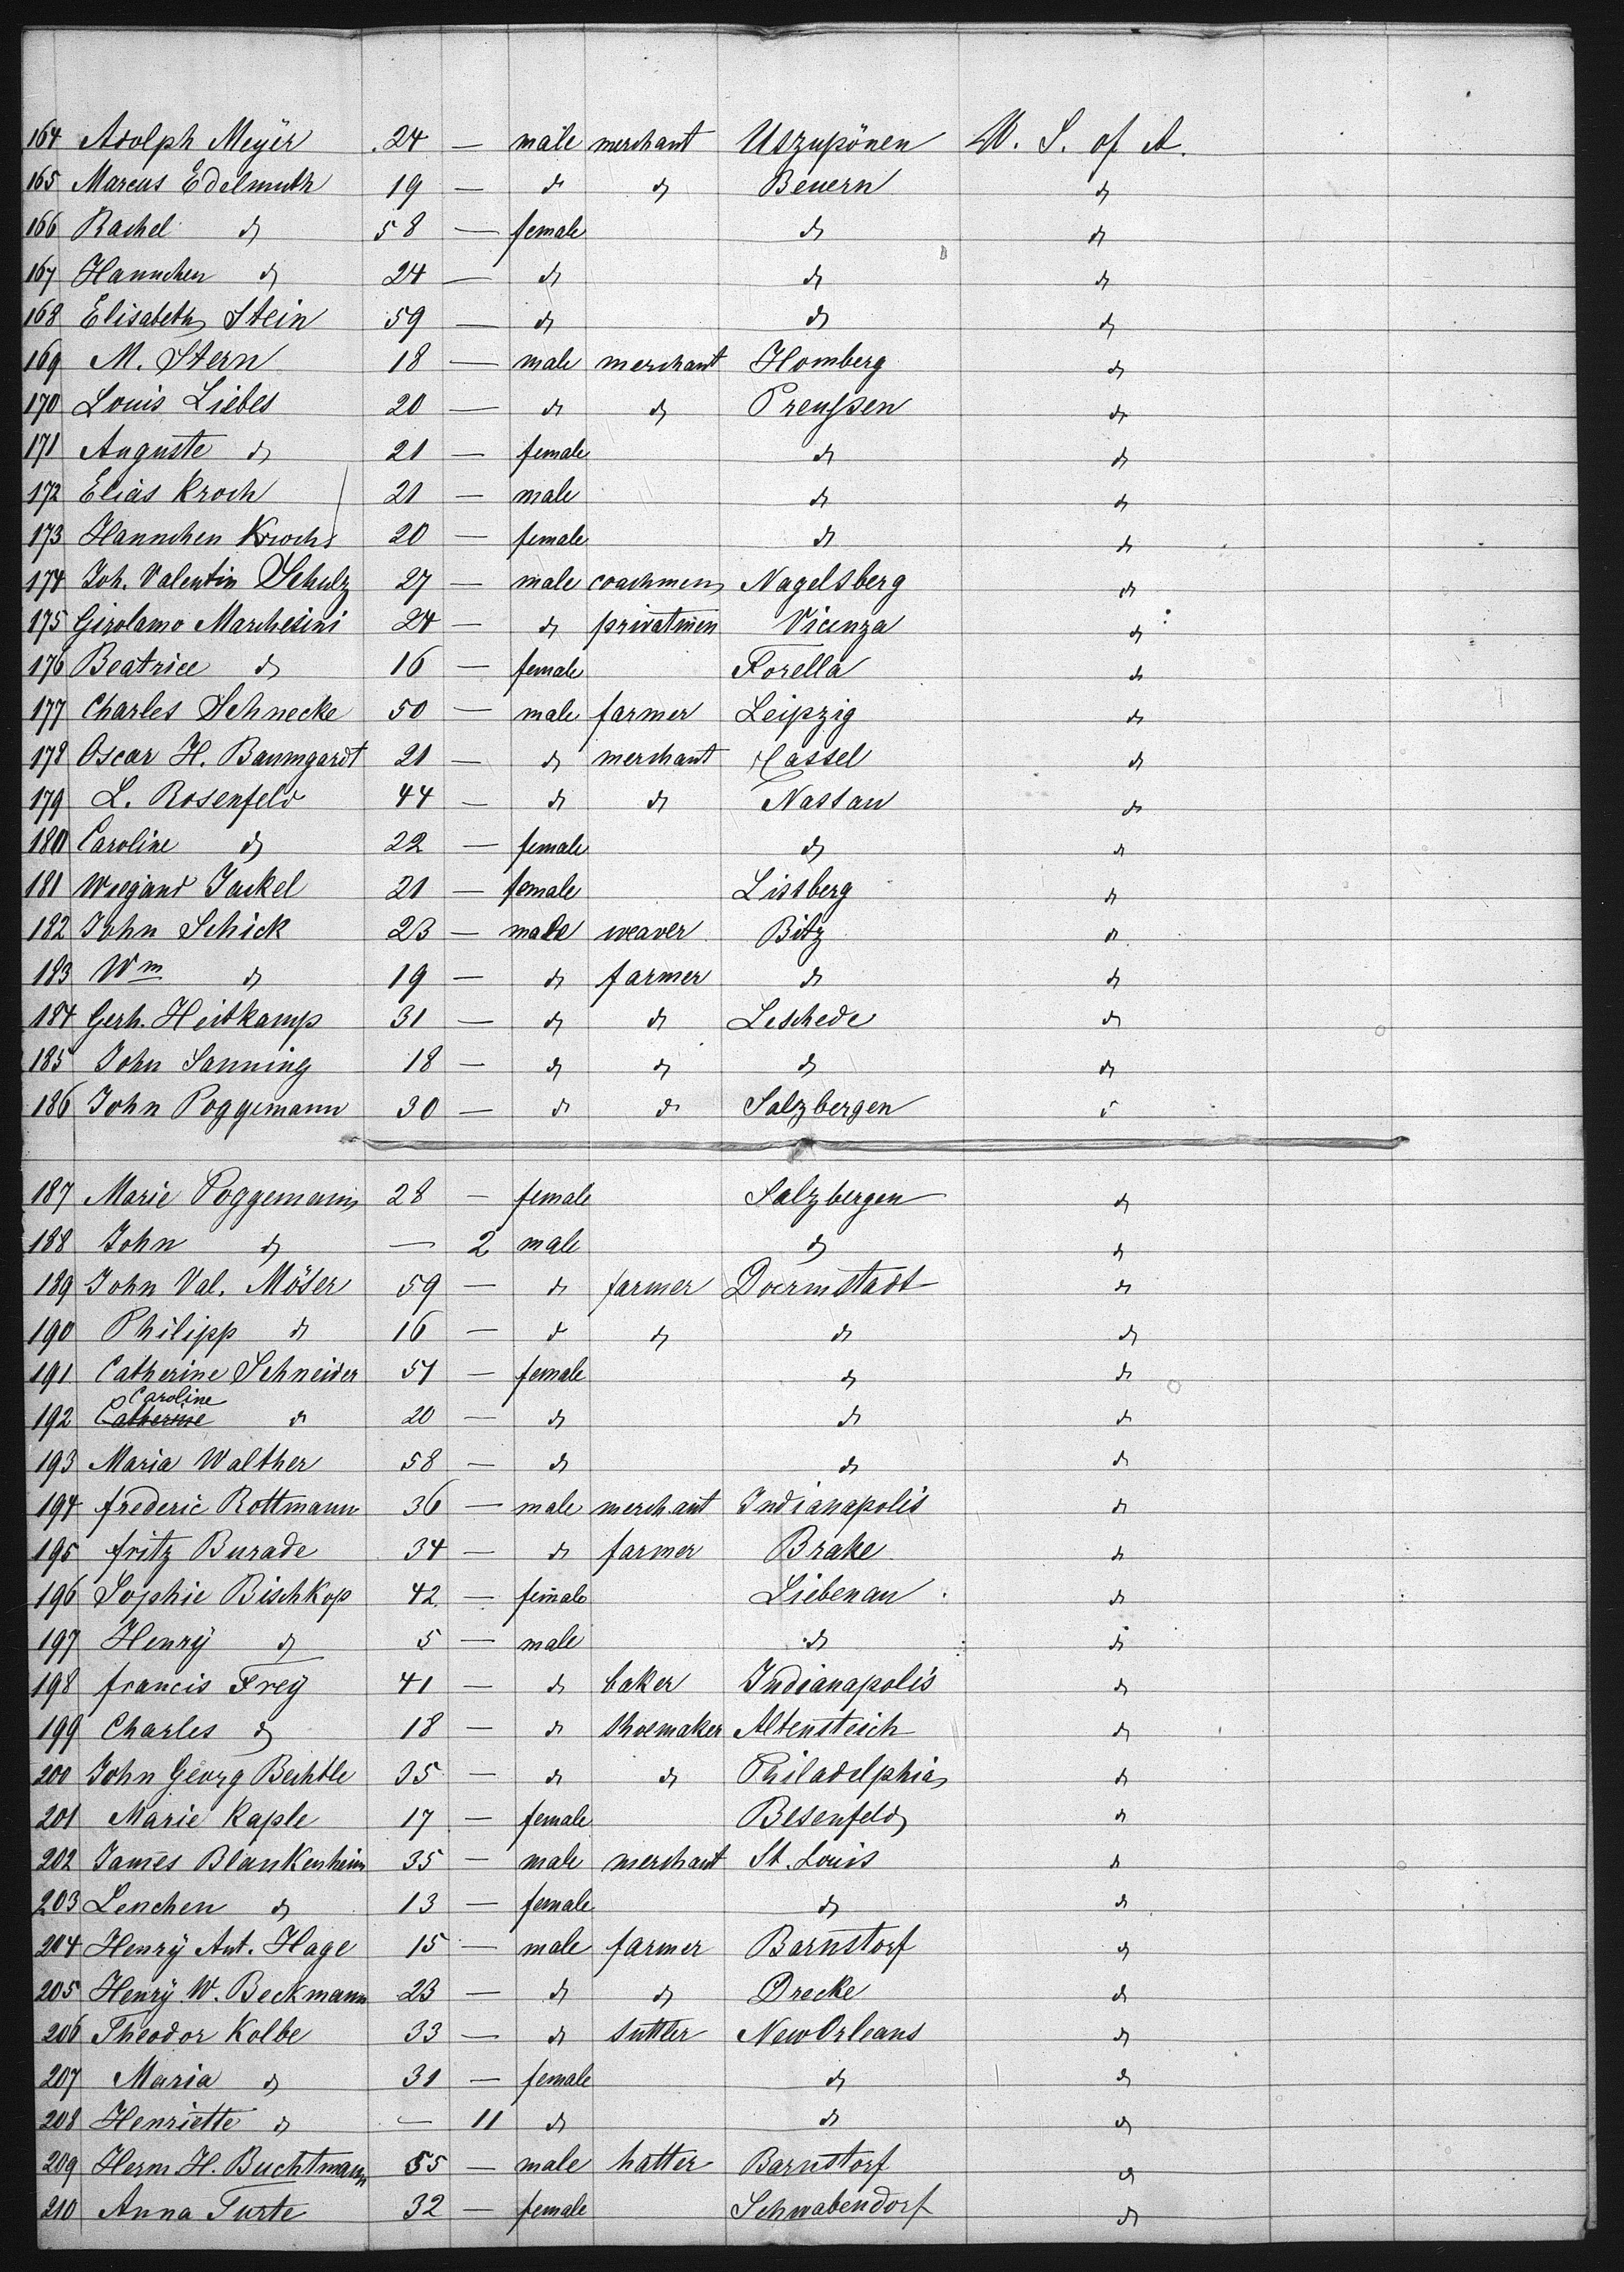 164 Adolph Meÿer 24 — male merchant Uszupönen U. S. of A.
165 Marcus Edelmuth 19 — do do Beuern do
166 Rachel do 58 — female do do
167 Hannchen do 24 — do do do
168 Elisabeth Stein 59 — do do do
169 M. Stern 18 — male merchant Homberg do
170 Louis Liebes 20 — do do Preußen do
171 Auguste do 21 — female do do
172 Elias Kroch 21 — male do do
173 Hannchen Kroch 20 — female do do
174 Joh. Valentin Schulz 27 — male coachmen Nagelsberg do
175 Girolamo Marchesini 24 — do privatmen Vicenza do
176 Beatrice do 16 — female Forella do
177 Charles Schnecke 50 — male farmer Leipzig do
178 Oscar H. Baumgardt 21 — do merchant Cassel do
179 L. Rosenfeld 44 — do do Nassau do
180 Caroline do 22 — female do do
181 Wiegand Jackel 21 — female Lissberg do
182 John Schick 23 — male weaver Bitz do
183 Wm do 19 — do farmer do do
184 Gerh. Heitkamp 31 — do do Leschede do
185 John Sanning 18 — do do do do
186 John Poggemann 30 — do do Salzbergen do
187 Marie Poggemann 28 — female Salzbergen do
188 John do — 2 male do do
189 John Val. Möser 59 — do farmer Doermstadt do
190 Philipp do 16 — do do do do
191 Catherine Schneider 51 — female do do
Caroline
192 Catherine do 20 — do do do
193 Maria Walther 58 — do do do
194 frederic Rottmann 36 — male merchant Indianapolis do
195 fritz Burade 34 — do farmer Brake do
196 Sophie Bischkop 42 — female Liebenau do
197 Henrÿ do 5 — male do do
198 francis Freÿ 41 — do baker Indianapolis do
199 Charles do 18 — do shoemaker Altensteich do
200 John Georg Bechtle 35 — do do Philadelphia do
201 Marie Kaple 17 — female Besenfeld do
202 James Blankenheim 35 — male merchant St. Louis do
203 Lenchen do 13 — female do do
204 Henrÿ Ant. Hage 15 — male farmer Barnstorf do
205 Henrÿ W. Beckmann 23 — do do Drecke do
206 Theodor Kolbe 33 — do suttler New Orleans do
207 Maria do 31 — female do do
208 Henriette do — 11 do do do
209 Herm. H. Buchtmann 55 — male hatter Barnstorf do
210 Anna Turte 32 — female Schwabendorf do